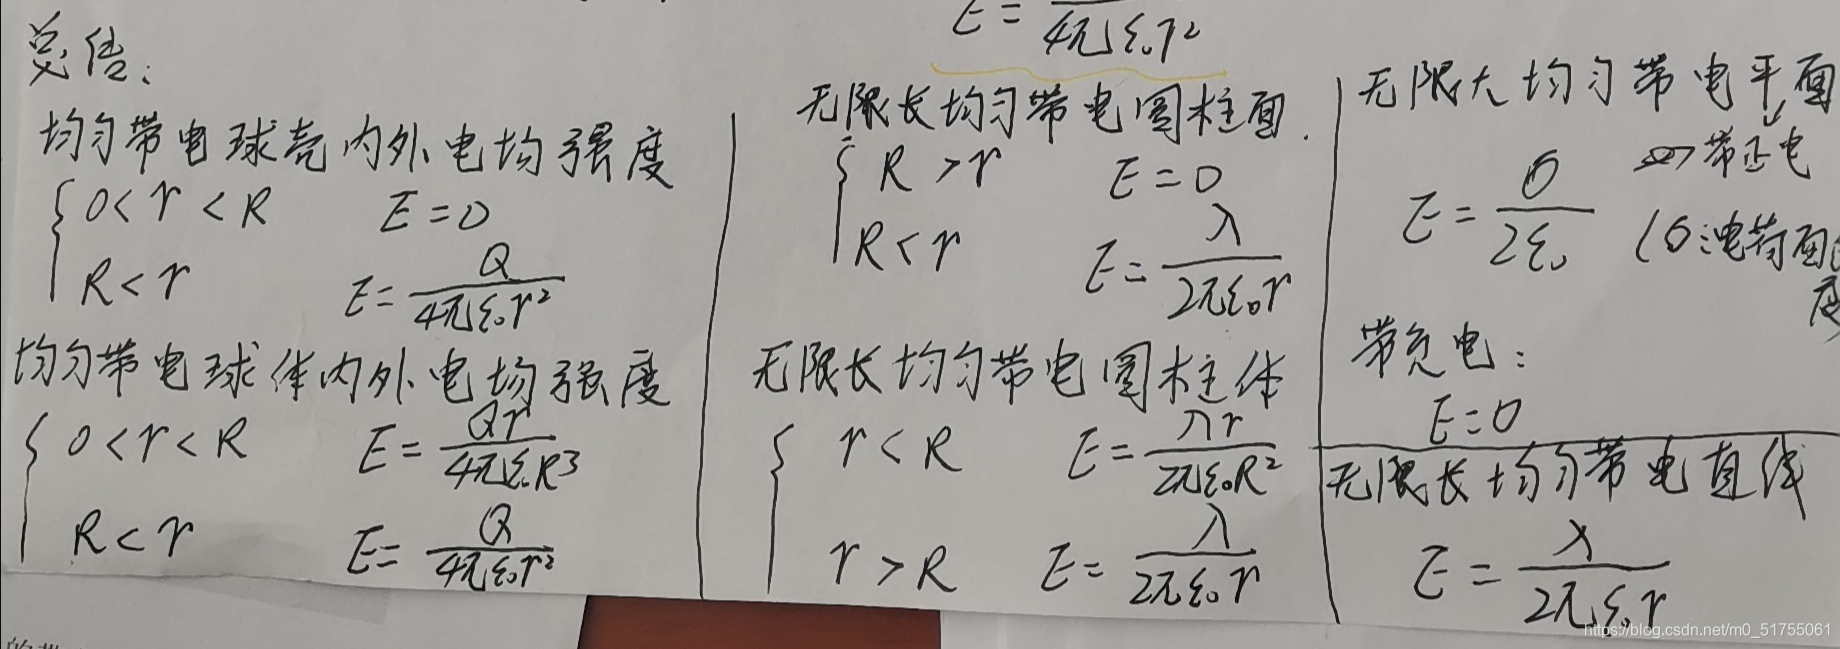 E = / 4πε₀r²
总结:
均匀带电球壳内外电均强度
0 < r < R E = 0
R < r E = Q / 4πε₀r²
均匀带电球体内外电场强度
0 < r < R E = Qr / 4πε₀R³
R < r E = Q / 4πε₀r²
无限长均匀带电圆柱面.
R > r E = 0
R < r E = λ / 2πε₀r
无限长均匀带电圆柱体
r < R E = λr / 2πε₀R²
r > R E = λ / 2πε₀r
无限大均匀带电平面
带正电
E = σ / 2ε₀ (σ:电荷面
度
带负电:
E = 0
无限长均匀带电直线
E = λ / 2πε₀r
https://blog.csdn.net/m0_51755061